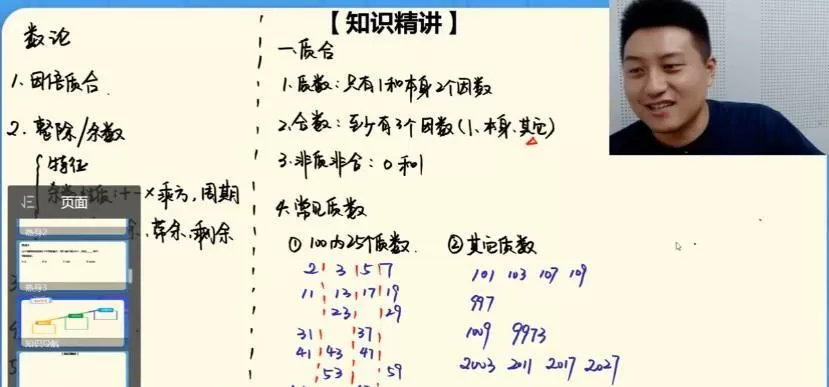 【知识精讲】
数论
1、因倍质合
2、整除/余数
特征
余数性质：+-×乘方，周期
余、弃余、剩余
一、质合
1、质数：只有1和本身2个因数
2、合数：至少有3个因数（1、本身、其它）
3、非质非合：0和1
4、常见质数
① 100内25个质数
2 3 5 7
11 13 17 19
23 29
31 37
41 43 47
53 59
② 其它质数
101 103 107 109
997
1009 9973
2003 2011 2017 2027
页面
热身2
热身3
知识导航